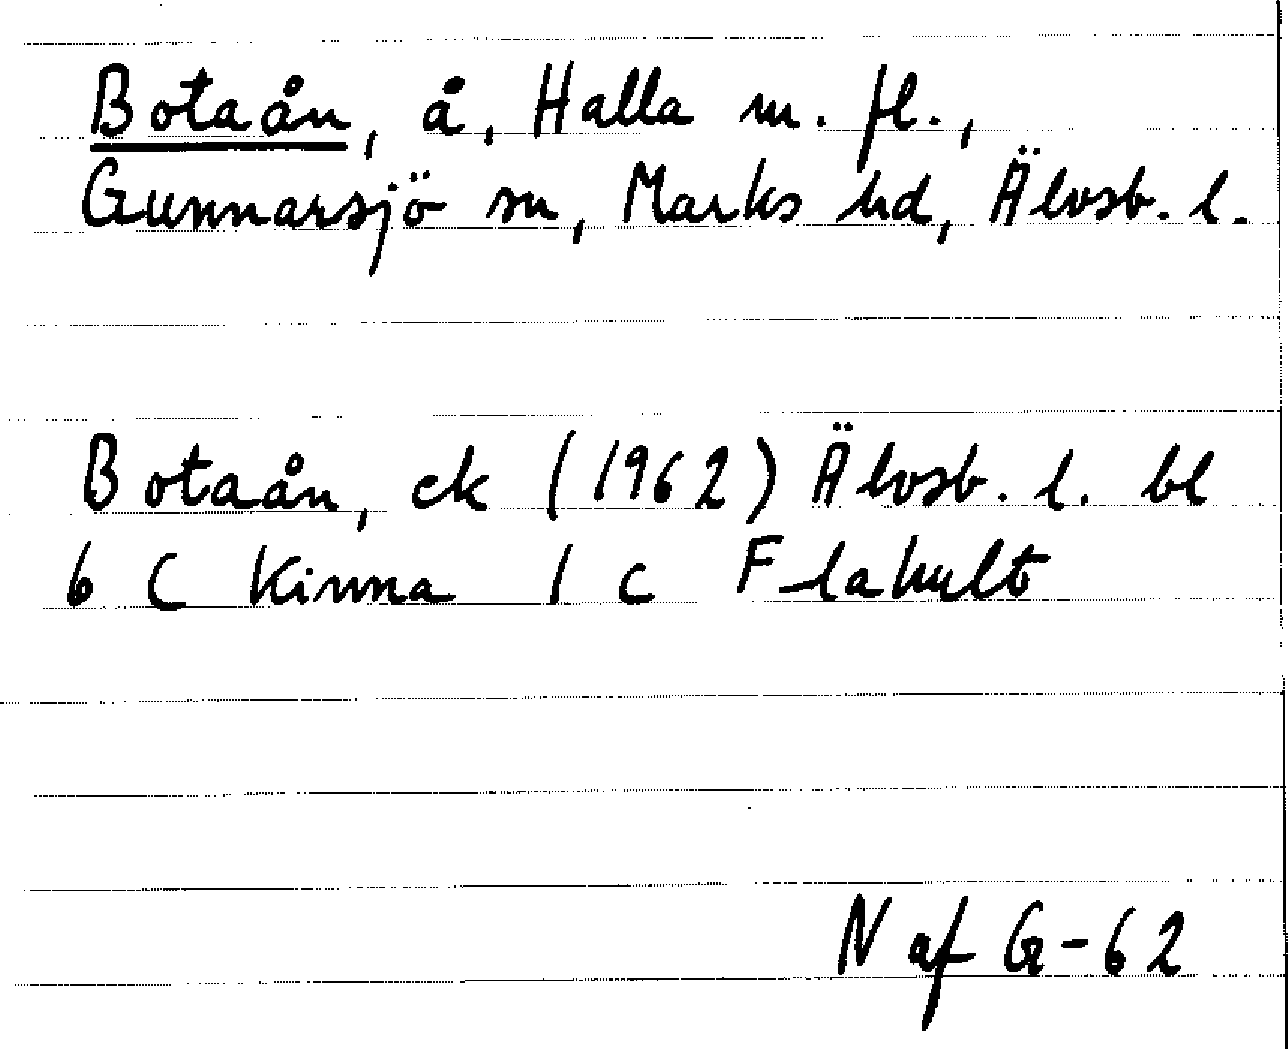 Botaån, å, Halla m. fl.,
Gunnarsjö sn, Marks hd, Älvsb. l.
Botaån, ek (1962) Älvsb. l. bl
6 C Kinna 1 c Flahult
N af G-62